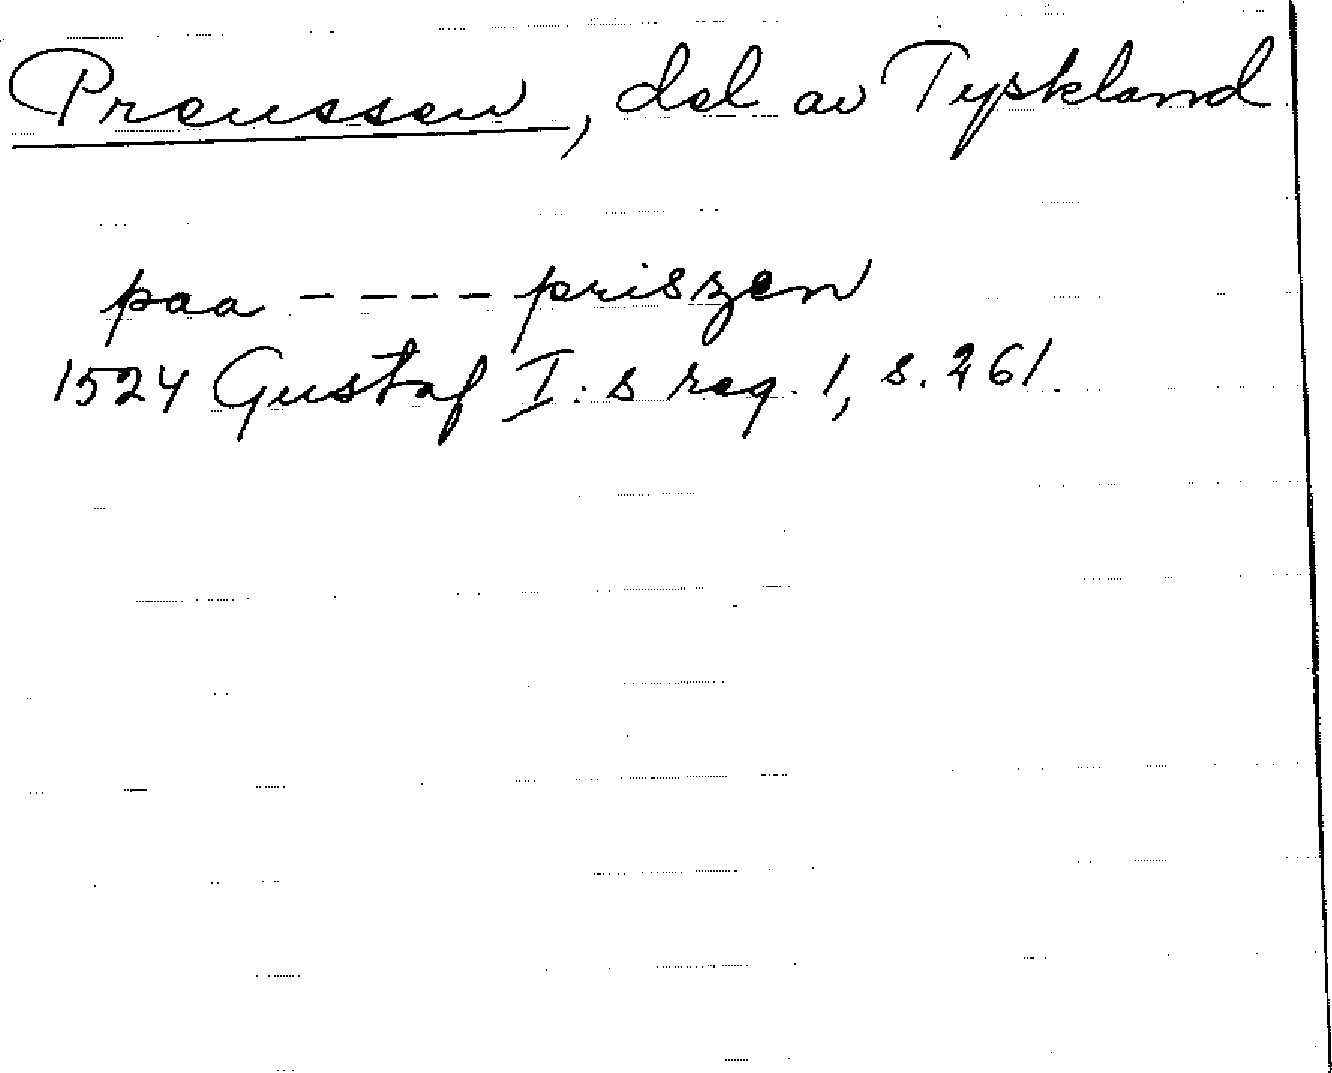 Preussen, del av Tyskland
paa ---- priszen
1524 Gustaf I:s reg. 1, s. 261.